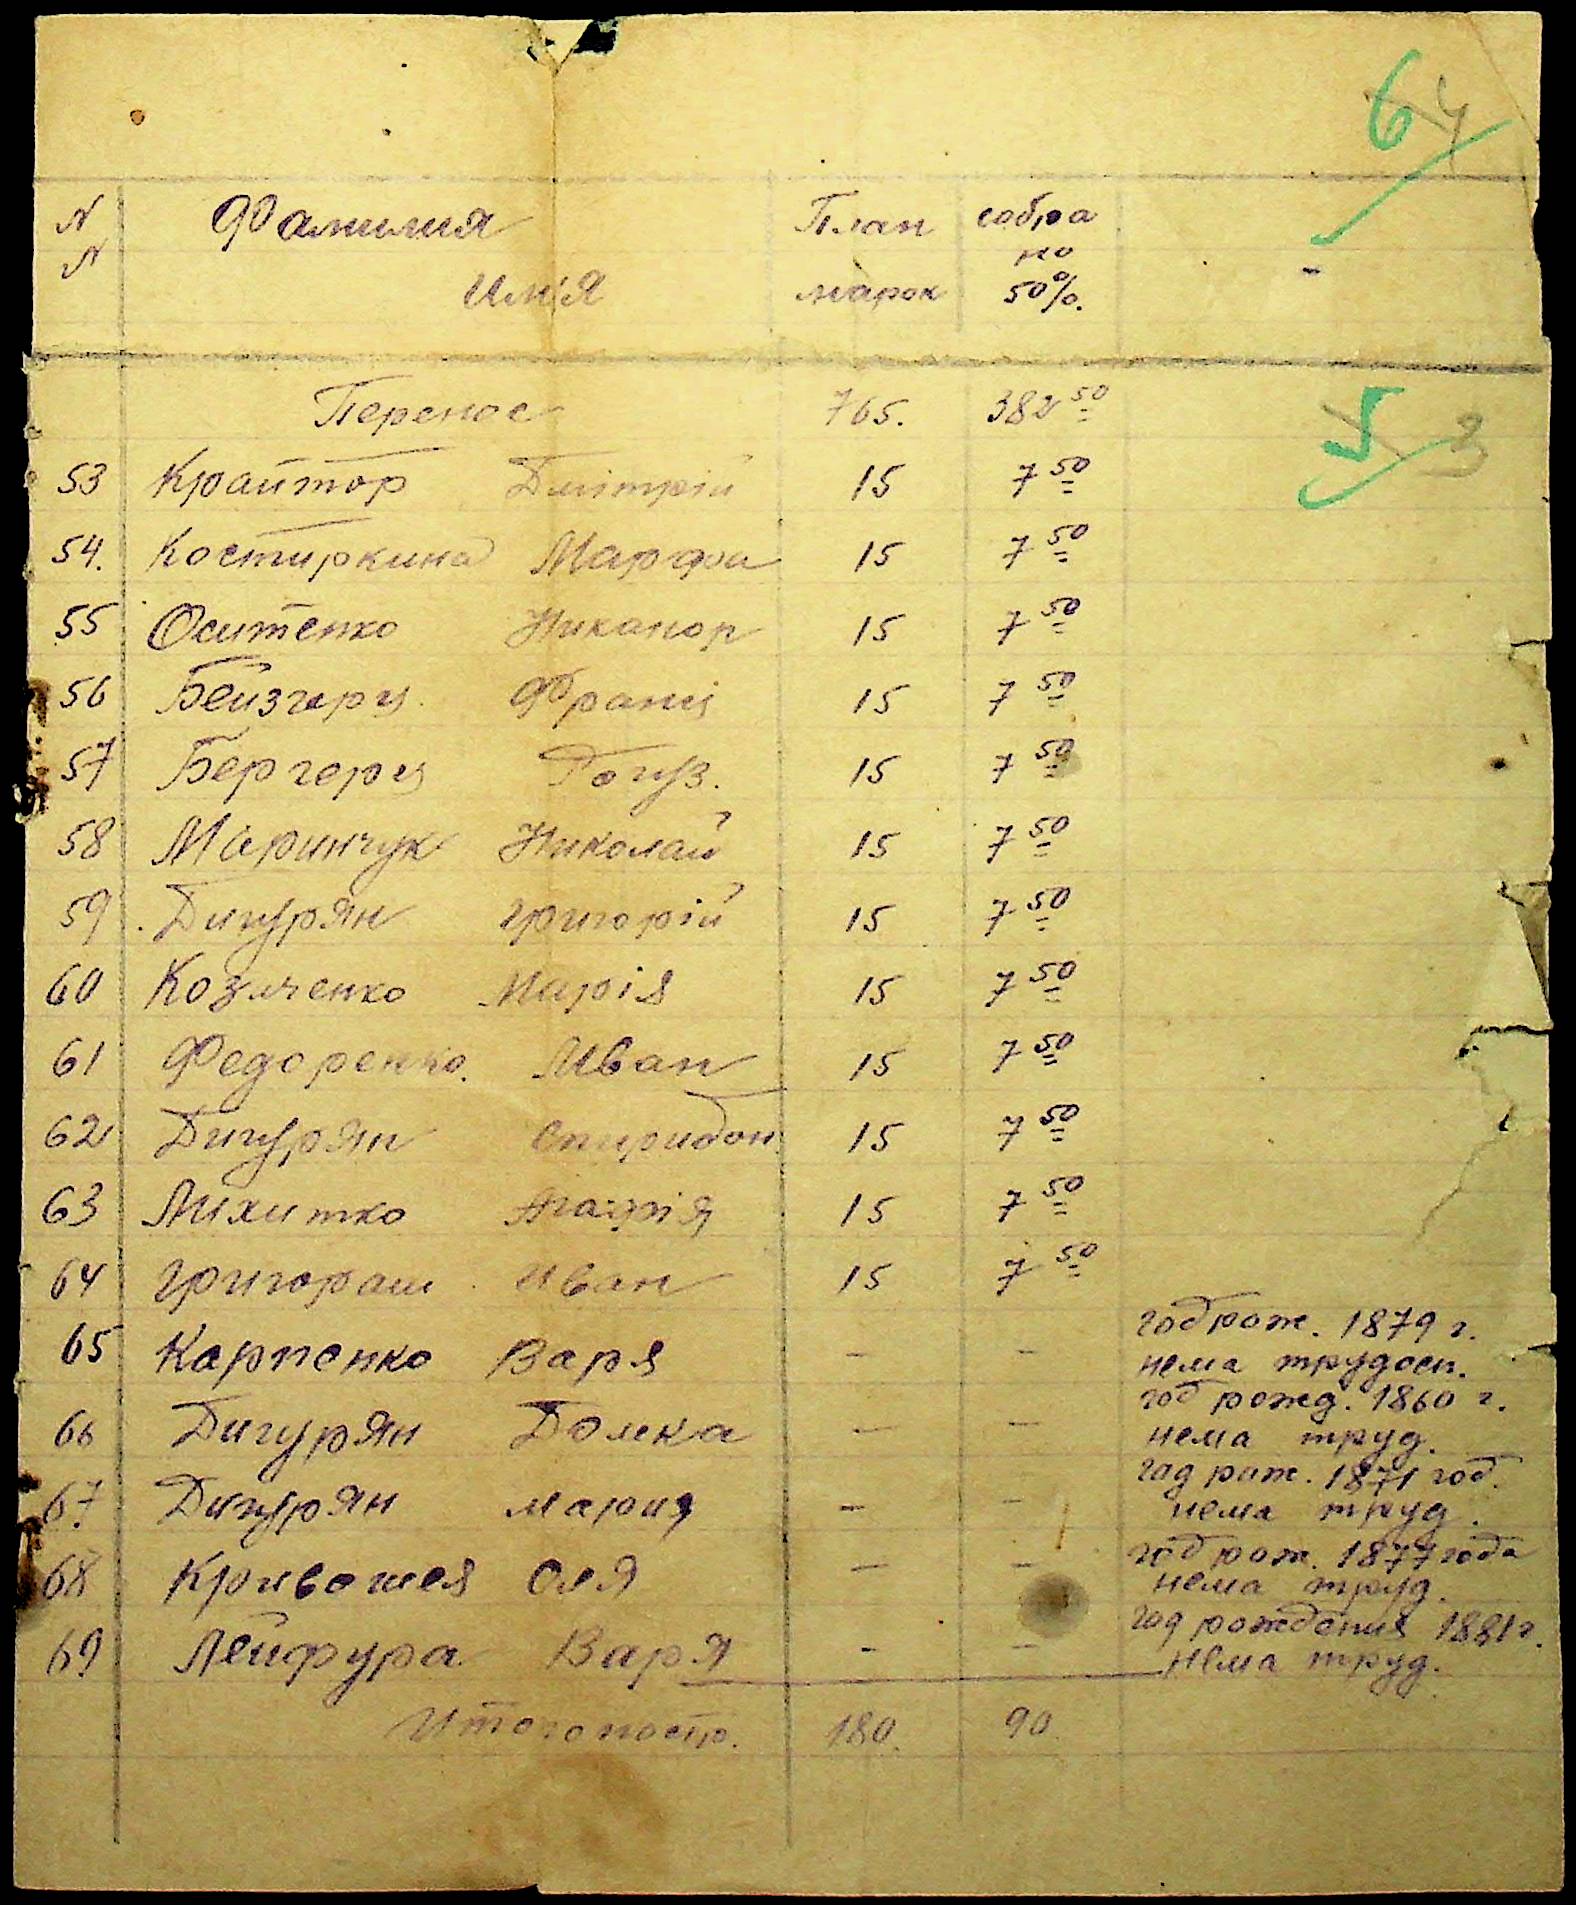 64
N Фамилия План собра
N но
Имя марок 50%.
Перенос 765. 382 50
5 3
53 Крайтор Дмітрій 15 7 50
54. Костиркина Марфа 15 7 50
55 Оситенко Никанор 15 7 50
56 Бейзгерц Франц 15 7 50
57 Бергерц 15 7 50
58 Маринчук Николай 15 7 50
59 Дигурян Григорій 15 7 50
60 Козаченко Марія 15 7 50
61 Федоренко. Иван 15 7 50
62 Дигурян Спиридон 15 7 50
63 Михитко Агафія 15 7 50
64 Григораш Иван 15 7 50
год рож. 1879 г.
65 Карпенко Варя - - нема трудосп.
год рожд. 1860 г.
66 Дигурян Домка - - нема труд.
год рож. 1871 год.
67 Дигурян Мария - - нема труд.
год рож. 1877 года
68 Кривошея Оля - - нема труд.
год рождения 1881 г.
69 Лейфура Варя - - нема труд.
Итого по стр. 180. 90